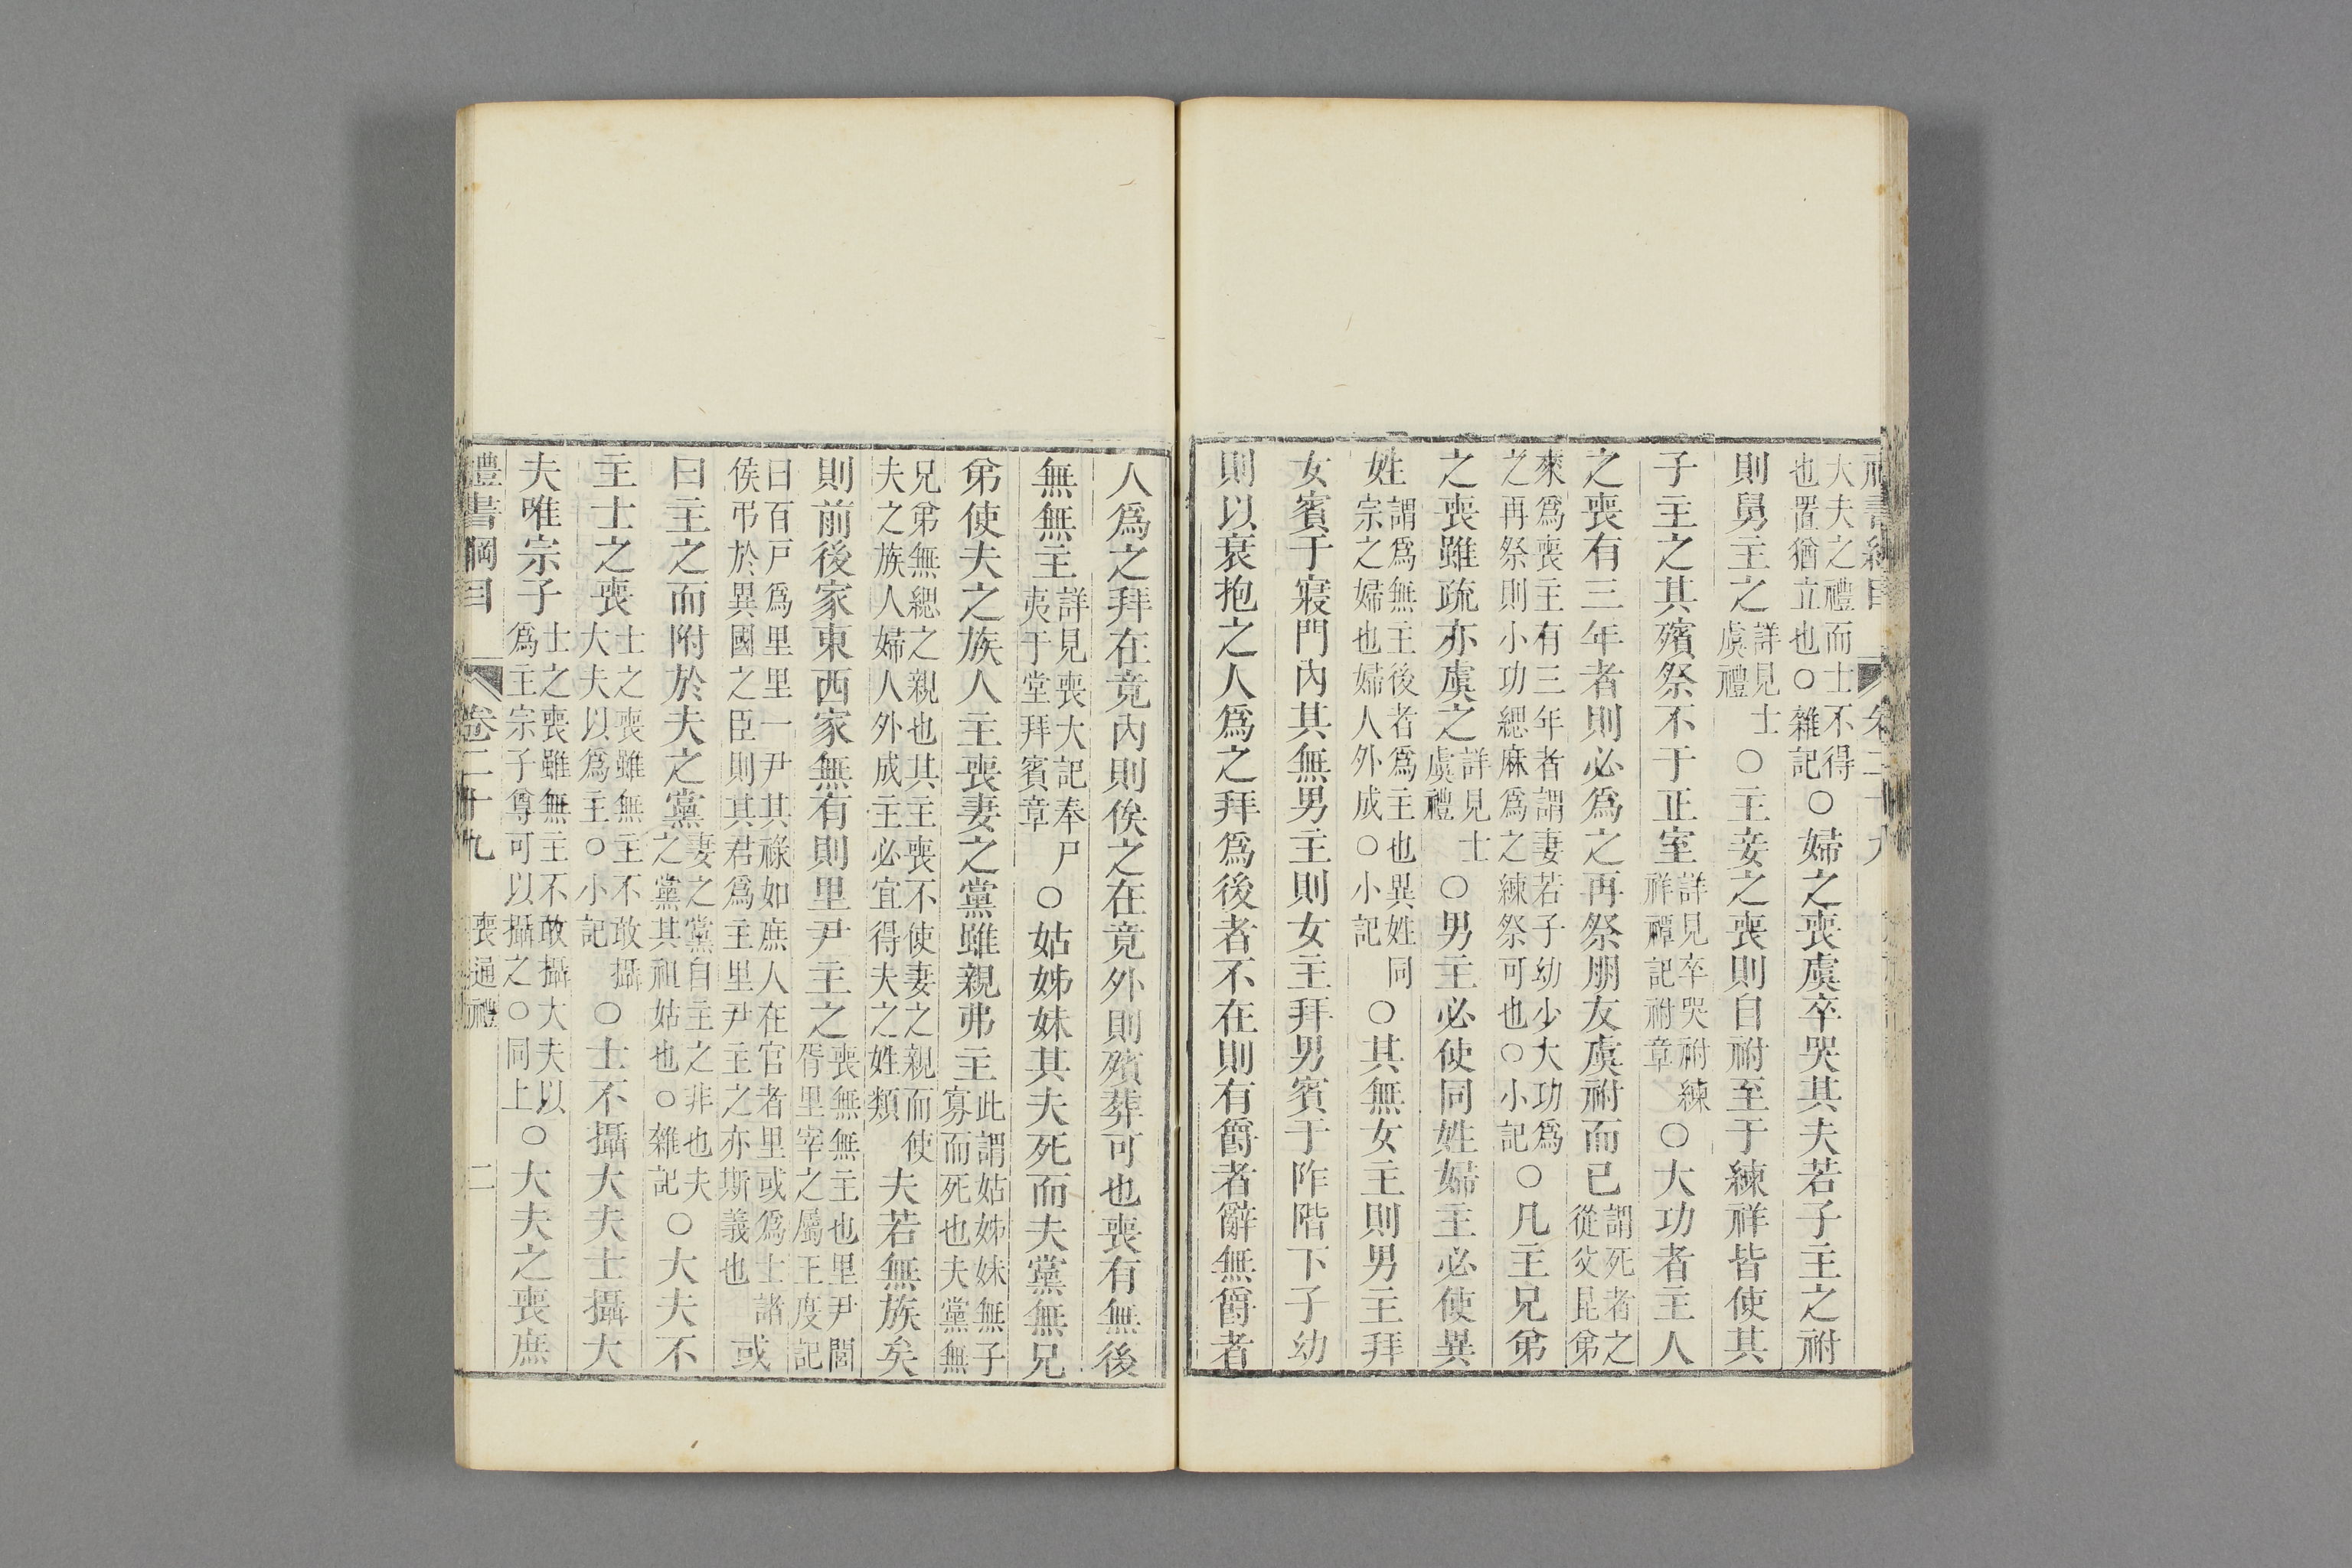 大夫之禮而士不得
也置猶立也○雜記
○婦之喪虞卒哭其夫若子主之祔
則舅主之
詳見士
虞禮
○主妾之喪則自祔至于練祥皆使其
子主之其殯祭不于正室
詳見卒哭祔練
祥禫記祔章
○大功者主人
之喪有三年者則必爲之再祭朋友虞祔而已
謂死者之
從父昆弟
來爲喪主有三年者謂妻若子幼少大功爲
之再祭則小功緦麻爲之練祭可也○小記
○凡主兄弟
之喪雖疏亦虞之
詳見士
虞禮
○男主必使同姓婦主必使異
姓
謂爲無主後者爲主也異姓同
宗之婦也婦人外成○小記
○其無女主則男主拜
女賓于寢門內其無男主則女主拜男賓于阼階下子幼
則以衰抱之人爲之拜爲後者不在則有爵者辭無爵者
人爲之拜在竟內則俟之在竟外則殯葬可也喪有無後
無無主
詳見喪大記奉尸
夷于堂拜賓章
○姑姊妹其夫死而夫黨無兄
弟使夫之族人主喪妻之黨雖親弗主
此謂姑姊妹無子
寡而死也夫黨無
兄弟無緦之親也其主喪不使妻之親而使
夫之族人婦人外成主必宜得夫之姓類
夫若無族矣
則前後家東西家無有則里尹主之
喪無無主也里尹閭
胥里宰之屬王度記
曰百戸爲里里一尹其祿如庶人在官者里或爲士諸
侯弔於異國之臣則其君爲主里尹主之亦斯義也
或
曰主之而附於夫之黨
妻之黨自主之非也夫
之黨其祖姑也○雜記
○大夫不
主士之喪
士之喪雖無主不敢攝
大夫以爲主○小記
○士不攝大夫士攝大
夫唯宗子
士之喪雖無主不敢攝大夫以
爲主宗子尊可以攝之○同上
○大夫之喪庶
禮書綱目 卷二十九 喪通禮 二